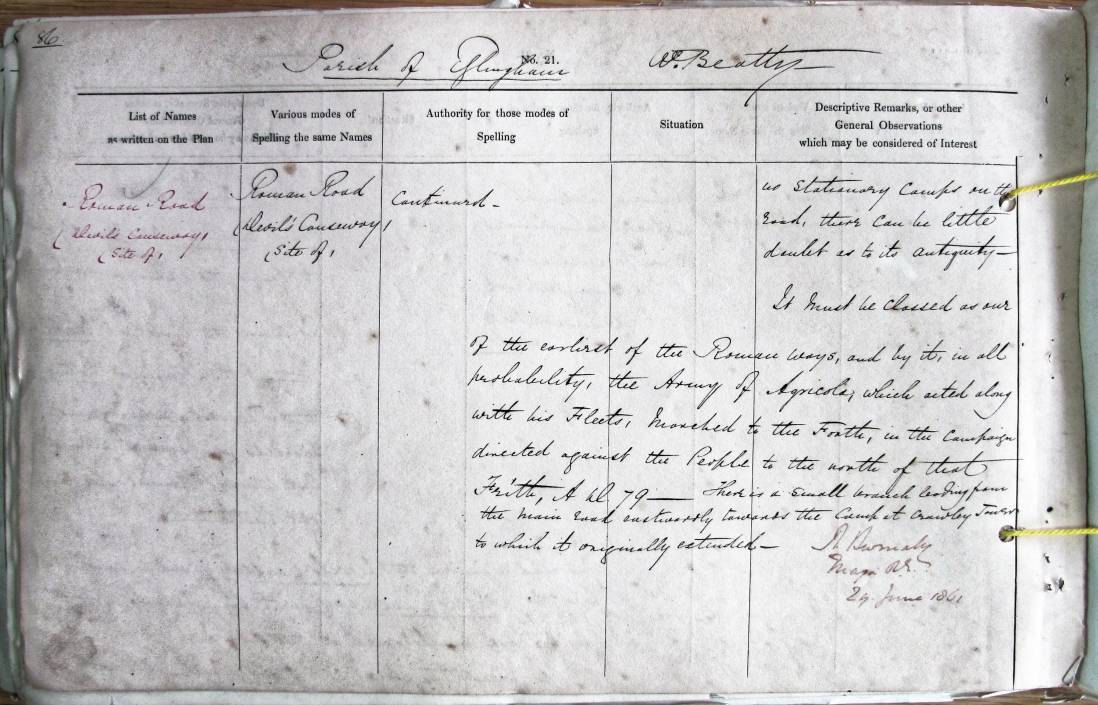 86
No. 21.
Parish of Eglingham W. Beatty
List of Names
as written on the Plan
Various modes of
Spelling the same Names
Authority for those modes of
Spelling
Situation
Descriptive Remarks, or other
General Observations
which may be considered of Interest
Roman Road
(Devil's Causeway)
(Site of)
Roman Road
(Devil's Causeway)
(Site of)
Continued -
no Stationary Camps on the
road, there can be little
doubt as to its antiquity —
It must be classed as our
of the earliest of the Roman ways, and by it, in all
probability, the Army of Agricola, which acted along
with his Fleets, Marched to the Forth, in the Campaign
directed against the People to the north of that
Frith, A.D. 79 — There is a small branch leading from
the main road eastwardly towards the Camp at Crawley Tower
to which it originally extended —
Major R.E.
29 June 1861